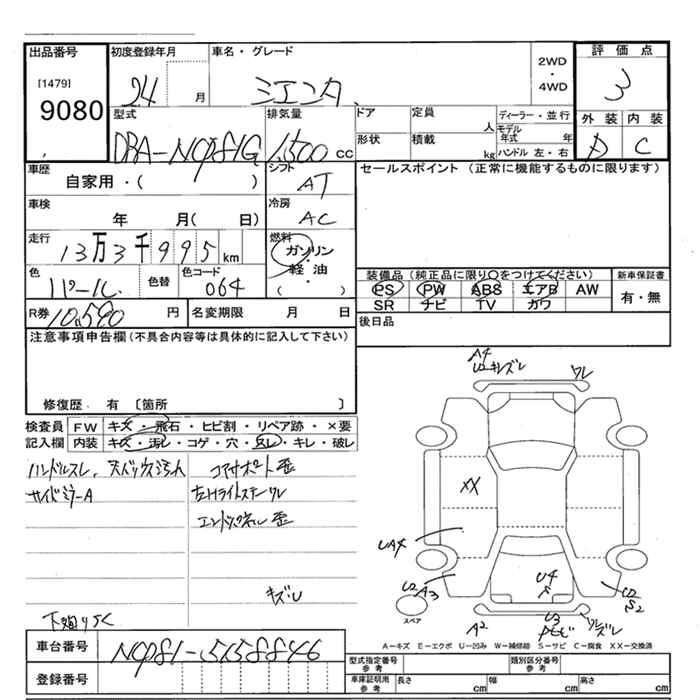 出品番号 初度登録年月 車名・グレード 2WD・4WD 評価点
[1479] 9080 24 月 シエンタ 3
型式 排気量 ドア 定員 人 ディーラー・並行 外装 内装
DBA-NCP81G 1,500 cc 形状 積載 kg モデル年式 年 ハンドル 左・右 D C
車歴 自家用・( ) シフト AT セールスポイント (正常に機能するものに限ります)
車検 年 月( 日) 冷房 AC
走行 13万3千995km 燃料 ガソリン・軽油 ( )
色 パール 色替 色コード 064
装備品(純正品に限り○をつけてください) 新車保証書
PS PW ABS エアB AW 有・無
SR ナビ TV カワ
R券 10,590 円 名変期限 月 日 後日品
注意事項申告欄(不具合内容等は具体的に記入して下さい)
修復歴・有 〔箇所 〕
検査員 FW キズ・飛石・ヒビ割・リペア跡・×要
記入欄 内装 キズ・汚レ・コゲ・穴・スレ・キレ・破レ
ハンドルスレ コアサポート歪
サイドミラーA 左Hライトステーワレ
エンドパネル歪
キズ
下廻りサビ
A4
U2キズ ワレ
XX
UA4
U2 A3
U4
U2 S2
スペア A2 U3
A-キズ E-エクボ U-凹み W-補修跡 S-サビ C-腐食 XX-交換済
車台番号 NCP81-5158846
登録番号
型式指定番号 参考 類別区分番号 参考
車庫証明用 参考 長さ cm 幅 cm 高さ cm